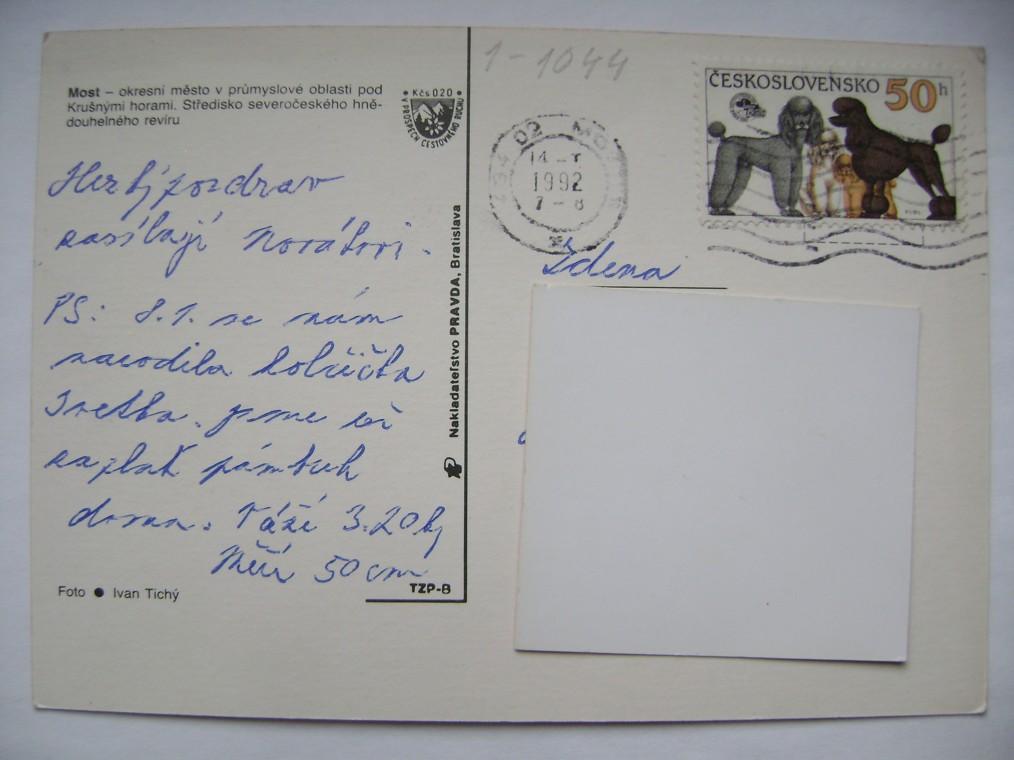 1-1044
Most – okresní město v průmyslové oblasti pod
Krušnými horami. Středisko severočeského hně-
douhelného revíru
Kčs 0,20
V PROSPĚCH CESTOVNÉHO RUCHU
ČESKOSLOVENSKO 50h
02 MO
14-1
1992
7-8
Hezký pozdrav
zasílají Novákovi.
PS: 8.1. se nám
narodila holčička
Ivetka. jsme už
zaplať pámbuh
doma. Váží 3.20 kg
Měří 50 cm
Zdena
Nakladateľstvo PRAVDA, Bratislava
TZP-8
Foto ● Ivan Tichý